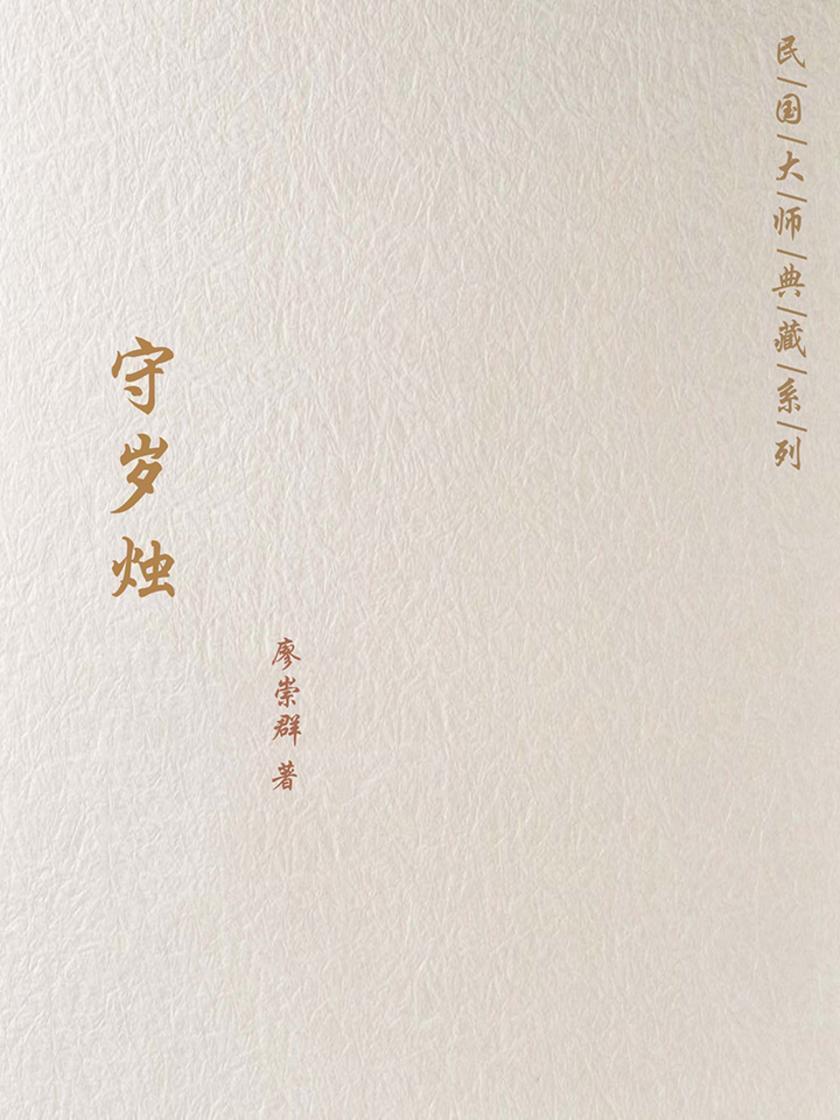 民|国|大|师|典|藏|系|列
守岁烛
廖崇群 著